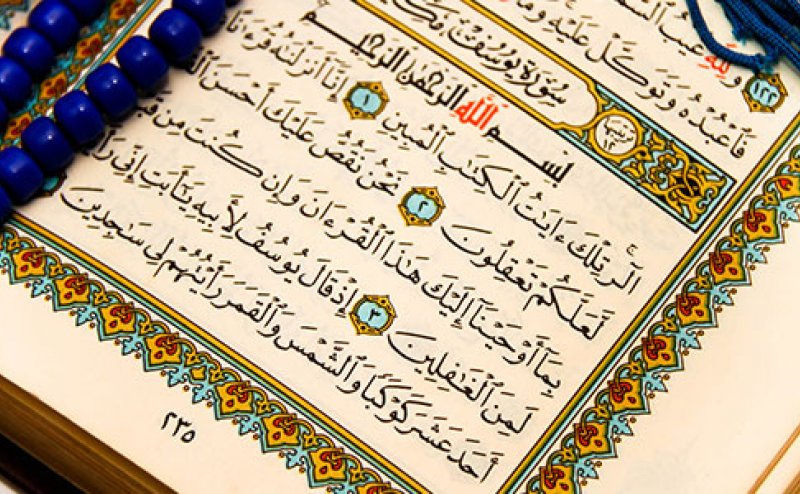 ١٢٢ وَلِلَّهِ غَيْبُ
فَٱعْبُدْهُ وَتَوَكَّلْ عَلَيْهِ وَمَا
سُورَةُ يُوسُفَ
ترتيبها ١٢
بِسْمِ ٱللَّهِ ٱلرَّحْمَٰنِ ٱلرَّحِيمِ
الٓر تِلْكَ ءَايَٰتُ ٱلْكِتَٰبِ ٱلْمُبِينِ ١ إِنَّآ أَنزَلْنَٰهُ
لَّعَلَّكُمْ تَعْقِلُونَ ٢ نَحْنُ نَقُصُّ عَلَيْكَ أَحْسَنَ
بِمَآ أَوْحَيْنَآ إِلَيْكَ هَٰذَا ٱلْقُرْءَانَ وَإِن كُنتَ مِن
لَمِنَ ٱلْغَٰفِلِينَ ٣ إِذْ قَالَ يُوسُفُ لِأَبِيهِ يَٰٓأَبَتِ إِنِّي
أَحَدَ عَشَرَ كَوْكَبًا وَٱلشَّمْسَ وَٱلْقَمَرَ رَأَيْتُهُمْ لِي سَٰجِدِينَ
٢٣٥